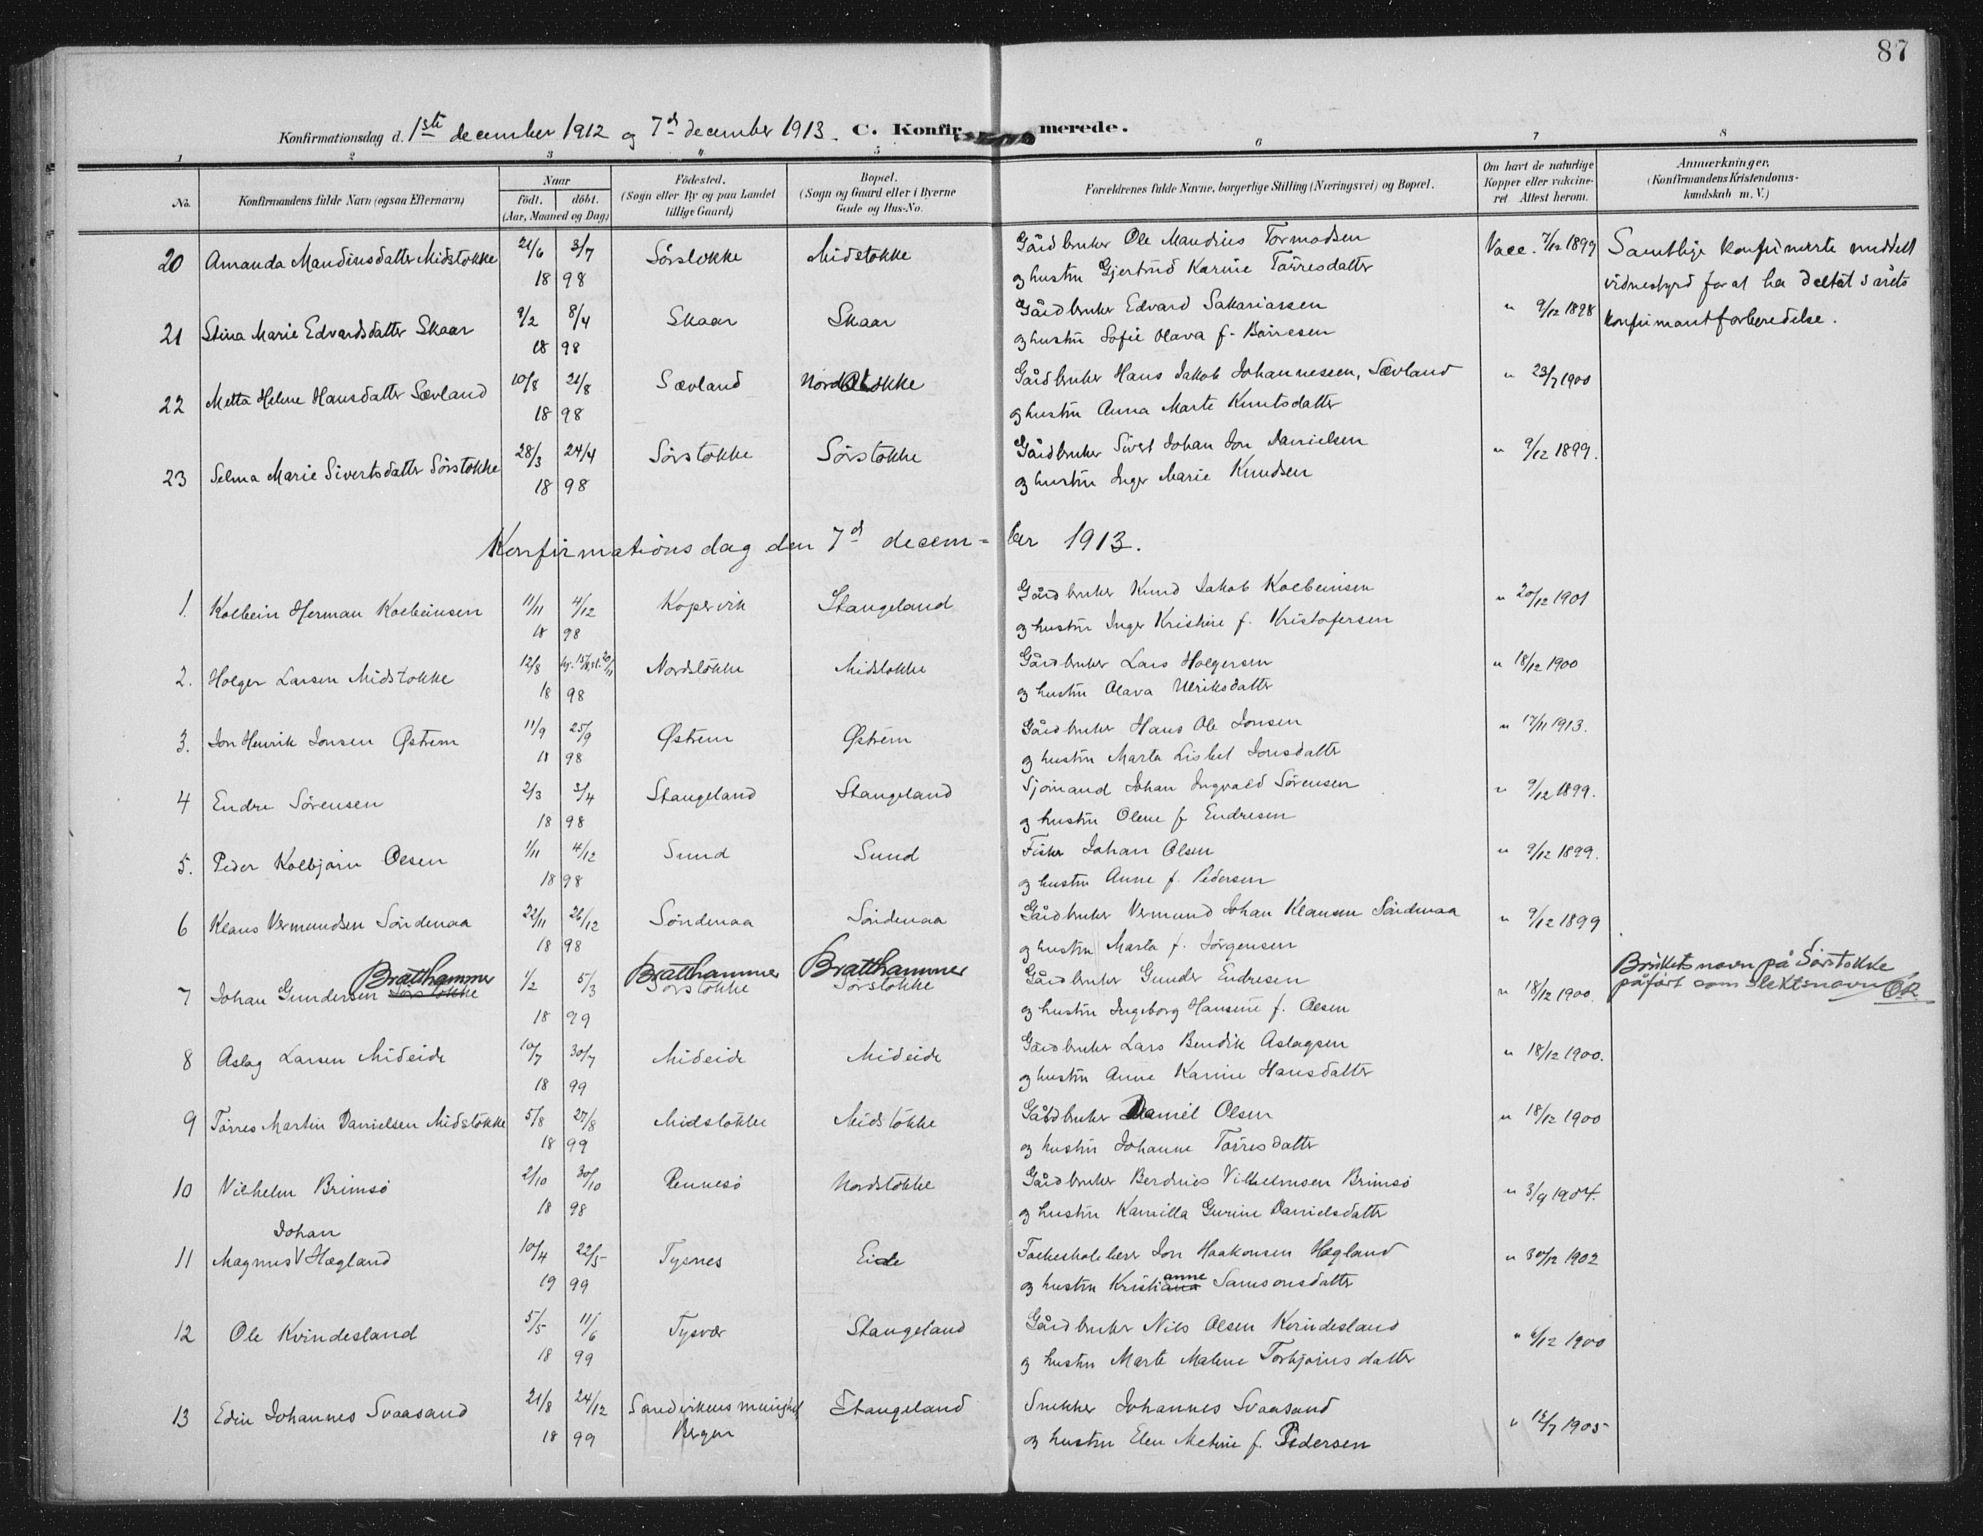 87
Konfirmationsdag d. 1ste december 1912 og 7d december 1913. C. Konfirmerede.
1 2 3 4 5 6 7 8
No.
Konfirmandens fulde Navn (ogsaa Efternavn)
Naar
født. døbt.
(Aar, Maaned og Dag)
Fødested.
(Sogn eller By og paa Landet
tillige Gaard)
Bopæl.
(Sogn og Gaard eller i Byerne
Gade og Hus-No.
Forældrenes fulde Navne, borgerlige Stilling (Næringsvei) og Bopæl.
Om havt de naturlige
Kopper eller vakcine-
ret Attest herom.
Anmærkninger,
(Konfirmandens Kristendoms-
kundskab m. V.)
20 Amanda Mandiusdatter Midstokke 21/6 3/7 18 98 Sörstokke Midstokke
Gårdbruker Ole Mandius Tormodsen
og hustru Gjertrud Karine Törresdatter
Vacc. 7/12 1899
Samtlige konfirmerte meddelt
vidnesbyrd for at ha deltat i årets
konfirmantforberedelse.
21 Stina Marie Edvardsdatter Skaar 9/2 8/4 18 98 Skaar Skaar
Gårdbruker Edvard Sakariassen
og hustru Sofie Olava f.
" 9/12 1898
22 Metta Helene Hansdatter Sævland 10/8 21/8 18 98 Sævland Nordstokke
Gårdbruker Hans Jakob Johannessen, Sævland
og hustru Anna Marte Knutsdatter
" 23/7 1900
23 Selma Marie Sivertsdatter Sörstokke 28/3 24/4 18 98 Sörstokke Sörstokke
Gårdbruker Sivert Johan Jon Danielsen
og hustru Inger Marie Knudsen
" 9/12 1899.
Konfirmationsdag den 7d decem=ber 1913.
1. Kolbein Herman Kolbeinsen 11/11 4/12 18 98 Kopervik Stangeland
Gårdbruker Knud Jakob Kolbeinsen
og hustru Inger Kristine f. Kristofersen
" 20/12 1901
2. Holger Larsen Midstokke 12/8 18 98 Nordstokke Midstokke
Gårdbruker Lars Holgersen
og hustru Olava Ulriksdatter
" 18/12 1900
3. Jon Henrik Jonsen Østrem 11/9 25/9 18 98 Østrem Østrem
Gårdbruker Hans Ole Jonsen
og hustru Marta Lisbet Jonsdatter
" 17/11 1913.
4 Endre Sörensen 2/3 3/4 18 98 Stangeland Stangeland
Sjömand Johan Ingvald Sörensen
og hustru Olene f. Endresen
" 9/12 1899.
5. Peder Kolbjörn Olsen 1/11 4/12 18 98 Sund Sund
Fisker Johan Olsen
og hustru Anne f. Pedersen
" 9/12 1899.
6 Klaus Vermundsen Söndenaa 22/11 26/12 18 98 Söndenaa Söndenaa
Gårdbruker Vermund Johan Klausen Söndenaa
og hustru Marta f. Jörgensen
" 9/12 1899
Bratthammer Bratthammer Bratthammer
7 Johan Gundersen Sörstokke 1/2 5/3 18 99 Sörstokke Sörstokke
Gårdbruker Gunder Endresen
og hustru Ingeborg Hansine f. Olsen
" 18/12 1900.
Brukets navn på Sörstokke
påfört som slektsnavn
8 Aslag Larsen Mideide 10/7 30/7 18 99 Mideide Mideide
Gårdbruker Lars Bendik Aslagsen
og hustru Anne Karine Hansdatter
" 18/12 1900.
9 Törres Martin Danielsen Midstokke 5/8 27/8 18 99 Midstokke Midstokke
Gårdbruker Daniel Olsen
og hustru Johanne Törresdatter
" 18/12 1900
10 Vilhelm Brimsö 2/10 30/10 18 98 Rennesö Nordstokke
Gårdbruker Berdines Vilhelmsen Brimsö
og hustru Kamilla Gurine Danielsdatter
" 3/9 1904.
Johan
11 Magnus V Hægland 10/4 22/5 19 99 Tysnes Eide
Folkeskolelærer Jon Haakonsen Hægland
og hustru Kristiana anne Samsonsdatter
" 30/12 1902
12 Ole Kvindesland 5/5 11/6 18 99 Tysvær Stangeland
Gårdbruker Nils Olsen Kvindesland
og hustru Marte Malene Torbjörnsdatter
" 6/12 1900
13 Edin Johannes Svaasand 21/8 24/12 18 99 Sandvikens menighet Bergen Stangeland
Snekker Johannes Svaasand
og hustru Elen Metine f. Pedersen
" 12/7 1905